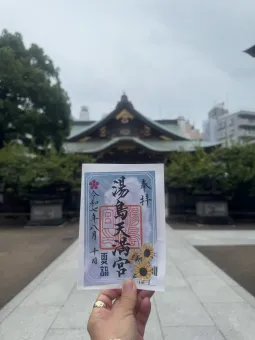 奉拝
湯島天満宮
令和七年八月十日
夏詣